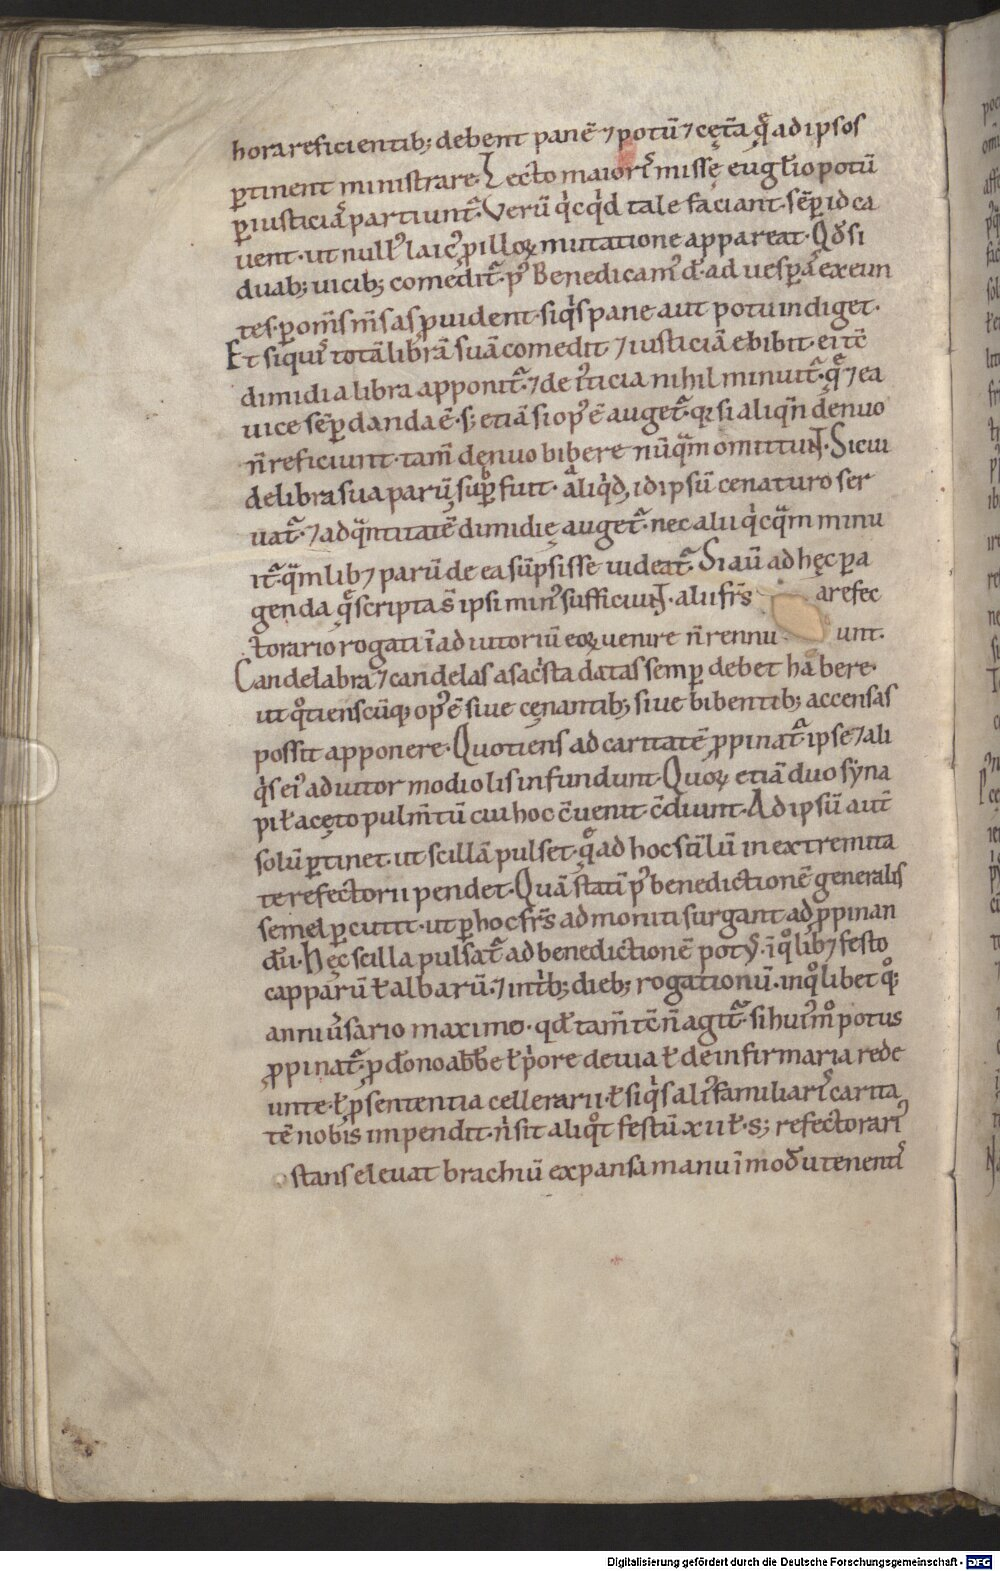 hora reficientib; debent panē ⁊ potū ⁊ cęt̄a q̄ ad ipsos
ꝑtinent ministrare. Lecto maioris missę euḡlio potū
ꝑ iusticiā partiunt᷑. Verū qͥcqͥd tale faciant. sēꝑ id ca
ueant. ut null᷒ laic᷒ ꝑ illoꝝ mutatione appareat. Qd̄ si
duab; uicib; comedit᷑. p᷒ Benedicam᷒ d̄. ad uesꝑā exeun
tes. ꝑ om̄s m̄sas ꝓuident. siqͥs pane aut potu indiget.
Et siquis totā librā suā comedit ⁊ iusticiā ebibit. ei tc̄
dimidia libra apponit᷑. ⁊ de iusticia nihil minuit᷑. q̄ ⁊ ea
uice sēꝑ danda ē. s; etiā si op᷒ ē auget᷑. qꝫ si aliqn̄ denuo
n̄ reficiunt. tam̄ denuo bibere nūqᷓm omittunt. Si cui
de libra sua parū suꝑfuit. aliqͥd, id ipsū cenaturo ser
uat᷑. ⁊ ad qᷓntitatē dimidię auget᷑. nec alii qͥcqᷓm minu
it᷑. qᷓmlibꝫ parū de ea sūpsisse uideat᷑. Si aū ad hęc ꝑa
genda q̄ scripta s̄ ipsi min᷒ sufficiunt. alii fr̄s a refec
torario rogati ī adiutoriū eoꝝ uenire n̄ rennu unt.
Candelabra ⁊ candelas a sacͥsta datas semꝑ debet habere.
ut qͦtienscūqꝫ op᷒ ē siue cęnantib; siue bibentib; accensas
possit apponere. Quotiens ad caritatē ꝓpinat᷑. ipse ⁊ ali
qͥs ei᷒ adiutor modiolis infundunt. Quoꝝ etiā duo syna
pi ł acęto pulm̄tū cui hoc c̄uenit c̄diunt. Ad ipsū aut̄
solū ꝑtinet. ut scillā pulset. q̄ ad hoc stīlū in extremita
te refectorii pendet. Quā statī p᷒ benedictionē generalis
semel ꝑcutit. ut ꝑ hoc fr̄s admoniti surgant ad ꝓpinan
dū. Hęc scilla pulsat᷑ ad benedictionē pot᷒. ī qͦlibꝫ festo
capparū ł albarū. ⁊ intͥb; dieb; rogationū. in qͦlibet qͦqꝫ
anniūsario maximo. qd̄ tam̄ tc̄ n̄ agit᷑. si hui᷒mͦ potus
ꝓpinat᷑. ꝓ dono abb̄e ł pͥore de uia ł de infirmaria rede
unte. ł ꝓ sententia cellerarii. ł siqͥs ali᷒ familiaris carita
tē nobis impendit. nͥ sit aliqͦt festū xii ł. s; refectorari᷒
stans eleuat brachiū expansa manu ī modū tenentis